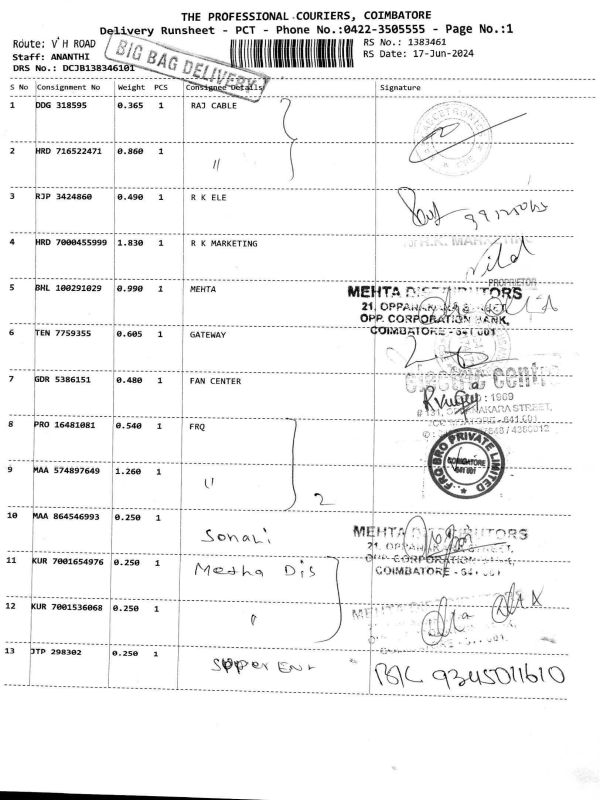 THE PROFESSIONAL COURIERS, COIMBATORE
Delivery Runsheet - PCT - Phone No.:0422-3505555 - Page No.:1
Route: V H ROAD
RS No.: 1383461
Staff: ANANTHI
RS Date: 17-Jun-2024
DRS No.: DCJB138346101
BIG BAG DELIVERY
S No Consignment No Weight PCS Consignee Details Signature
1 DDG 318595 0.365 1 RAJ CABLE
2 HRD 716522471 0.860 1 〃
3 RJP 3424860 0.490 1 R K ELE
4 HRD 7000455999 1.830 1 R K MARKETING
PROPRIETOR
5 BHL 100291029 0.990 1 MEHTA MEHTA DISTRIBUTORS
OPP. CORPORATION BANK,
COIMBATORE - 641 001
6 TEN 7759355 0.605 1 GATEWAY
7 GDR 5386151 0.480 1 FAN CENTER
electric centre
: 1969
8 PRO 16481081 0.540 1 FRQ
FRQ BRO PRIVATE LIMITED
COIMBATORE
641 001
9 MAA 574897649 1.260 1 〃 2
10 MAA 864546993 0.250 1 Sonali
MEHTA DISTRIBUTORS
COIMBATORE - 641 001
11 KUR 7001654976 0.250 1 Metha Dis
12 KUR 7001536068 0.250 1 〃
13 JTP 298302 0.250 1 Supper Ent 9345011610